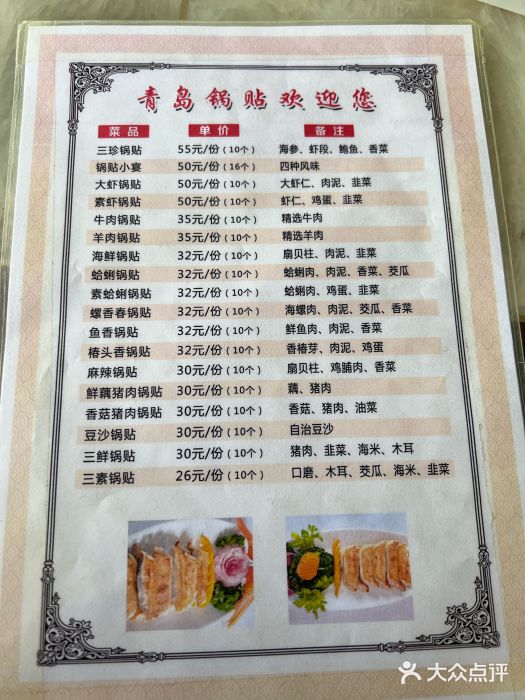 青岛锅贴欢迎您
菜品 单价 备注
三珍锅贴 55元/份(10个) 海参、虾段、鲍鱼、香菜
锅贴小宴 50元/份(16个) 四种风味
大虾锅贴 50元/份(10个) 大虾仁、肉泥、韭菜
素虾锅贴 50元/份(10个) 虾仁、鸡蛋、韭菜
牛肉锅贴 35元/份(10个) 精选牛肉
羊肉锅贴 35元/份(10个) 精选羊肉
海鲜锅贴 32元/份(10个) 扇贝柱、肉泥、韭菜
蛤蜊锅贴 32元/份(10个) 蛤蜊肉、肉泥、香菜、茭瓜
素蛤蜊锅贴 32元/份(10个) 蛤蜊肉、鸡蛋、韭菜
螺香春锅贴 32元/份(10个) 海螺肉、肉泥、茭瓜、香菜
鱼香锅贴 32元/份(10个) 鲜鱼肉、肉泥、香菜
椿头香锅贴 32元/份(10个) 香椿芽、肉泥、鸡蛋
麻辣锅贴 30元/份(10个) 扇贝柱、鸡脯肉、香菜
鲜藕猪肉锅贴 30元/份(10个) 藕、猪肉
香菇猪肉锅贴 30元/份(10个) 香菇、猪肉、油菜
豆沙锅贴 30元/份(10个) 自治豆沙
三鲜锅贴 30元/份(10个) 猪肉、韭菜、海米、木耳
三素锅贴 26元/份(10个) 口磨、木耳、茭瓜、海米、韭菜
大众点评